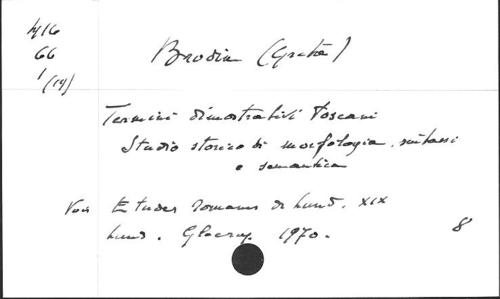 416
66
1 (19)
Brodin (Greta)
Termini dimostrativi toscani
Studio storico di morfologia, sintassi
e semantica
Voir Etudes romanes de Lund. XIX
Lund. Gleerup 1970.
8